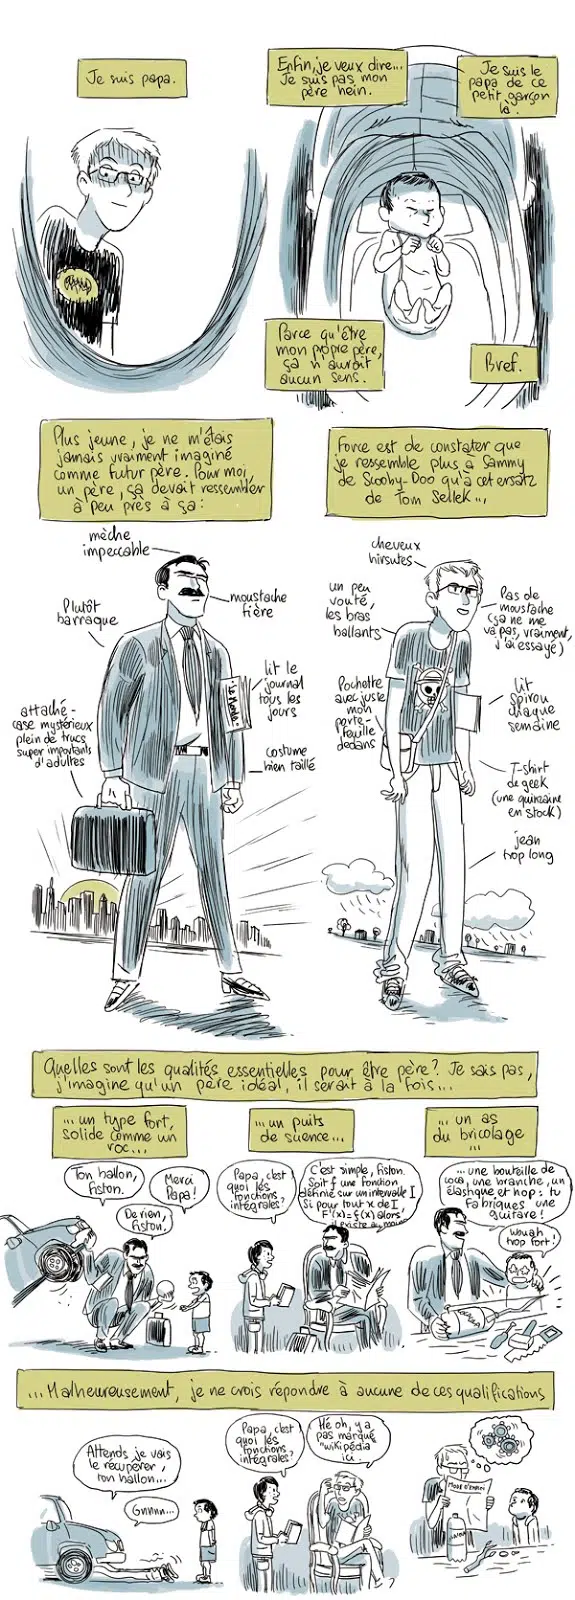 Je suis papa.
Enfin, je veux dire...
Je suis pas mon
père hein.
Je suis le
papa de ce
petit garçon
là.
Parce qu'être
mon propre père,
ça n'aurait
aucun sens.
Bref.
Plus jeune, je ne m'étais
jamais vraiment imaginé
comme futur père. Pour moi,
un père, ça devait ressembler
à peu près à ça :
Force est de constater que
je ressemble plus à Sammy
de Scooby-Doo qu'à cet ersatz
de Tom Sellek...
mèche
impeccable
moustache
fière
Plutôt
barraque
lit le
journal
tous les
jours
le Monde
attaché-
case mystérieux
plein de trucs
super importants
d'adultes
costume
bien taillé
cheveux
hirsutes
un peu
vouté,
les bras
ballants
Pas de
moustache
(ça ne me
va pas, vraiment,
j'ai essayé)
Pochette
avec juste
mon
porte-
feuille
dedans
lit
spirou
chaque
semaine
T-shirt
de geek
(une quinzaine
en stock)
jean
trop long
Quelles sont les qualités essentielles pour être père? Je sais pas,
j'imagine qu'un père idéal, il serait à la fois...
...un type fort,
solide comme un
roc...
...un puits
de science...
...un as
du bricolage
...
Ton ballon,
fiston.
Merci
Papa!
De rien,
fiston.
Papa, c'est
quoi les
fonctions
intégrales?
C'est simple, fiston.
Soit f une fonction
définie sur un intervalle I
Si pour tout x de I
F'(x)=f(x) alors
il existe au moins
...une bouteille de
coca, une branche, un
élastique et hop : tu
fabriques une
guitare!
Wouah
trop fort!
...Malheureusement, je ne crois répondre à aucune de ces qualifications
Attends je vais
le récupérer,
ton ballon...
Gnnnn...
Papa, c'est
quoi les
fonctions
intégrales?
Hé oh, y a
pas marqué
"wikipédia"
ici.
MODE D'EMPLOI